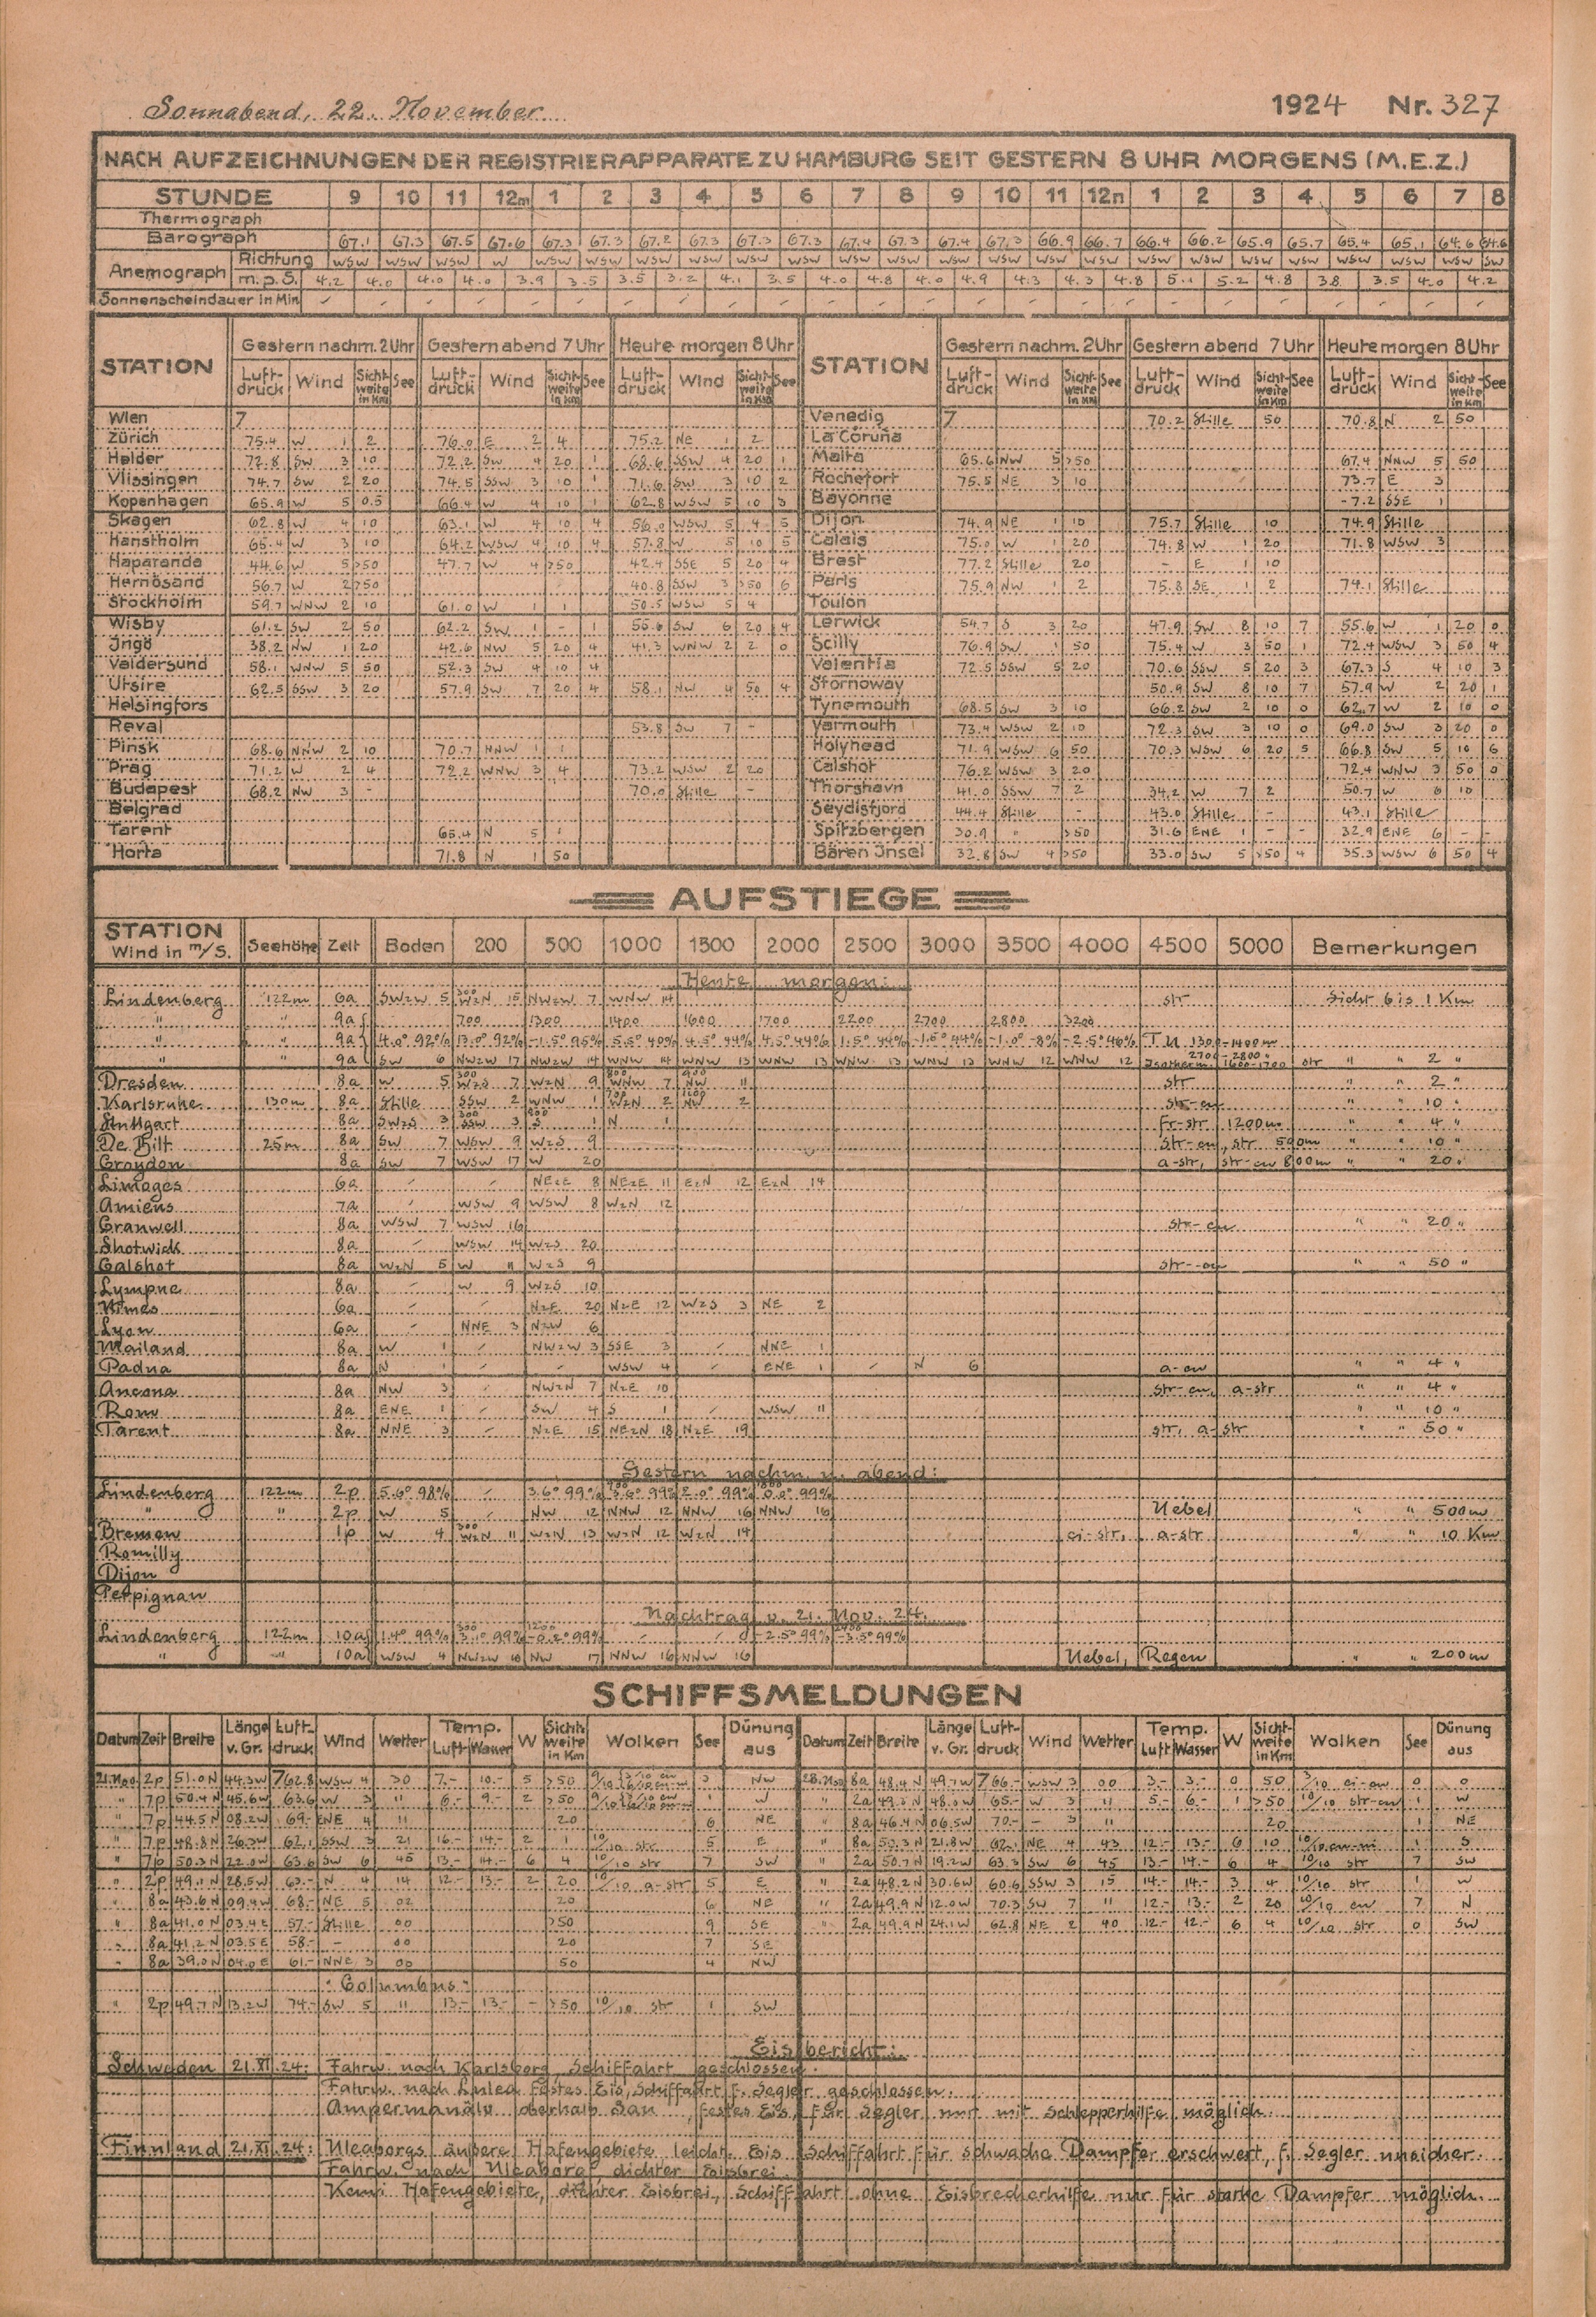 Sonnabend, 22. November 1924 Nr. 327
NACH AUFZEICHNUNGEN DER REGISTRIERAPPARATE ZU HAMBURG SEIT GESTERN 8 UHR MORGENS (M.E.Z.)
STUNDE 9 10 11 12m 1 2 3 4 5 6 7 8 9 10 11 12n 1 2 3 4 5 6 7 8
Thermograph
Barograph 67.1 67.3 67.5 67.6 67.3 67.3 67.2 67.3 67.3 67.3 67.4 67.3 67.4 67.3 66.9 66.7 66.4 66.2 65.9 65.7 65.4 65.1 64.6 64.6
Anemograph Richtung WSW WSW WSW W WSW WSW WSW WSW WSW WSW WSW WSW WSW WSW WSW WSW WSW WSW WSW WSW WSW WSW WSW SW
m.p.S. 4.2 4.0 4.0 4.0 3.9 3.5 3.5 3.2 4.1 3.5 4.0 4.8 4.0 4.9 4.3 4.3 4.8 5.1 5.2 4.8 3.8 3.5 4.0 4.2
Sonnenscheindauer in Min
STATION Gestern nachm. 2 Uhr Gestern abend 7 Uhr Heute morgen 8 Uhr STATION Gestern nachm. 2 Uhr Gestern abend 7 Uhr Heute morgen 8 Uhr
Luftdruck Wind Sichtweite in Km See Luftdruck Wind Sichtweite in Km See Luftdruck Wind Sichtweite in Km See Luftdruck Wind Sichtweite in Km See Luftdruck Wind Sichtweite in Km See Luftdruck Wind Sichtweite in Km See
Wien 7 Venedig 7 70.2 Stille 50 70.8 N 2 50
Zürich 75.4 W 1 2 76.0 E 2 4 75.2 NE 1 2 La Coruña
Helder 72.8 SW 3 10 72.2 SW 4 20 1 68.6 SSW 4 20 1 Malta 65.6 NW 5 >50 67.4 NNW 5 50
Vlissingen 74.7 SW 2 20 74.5 SSW 3 10 1 71.6 SW 3 10 2 Rochefort 75.5 NE 3 10 73.7 E 3
Kopenhagen 65.9 W 5 0.5 66.4 W 4 10 1 62.8 WSW 5 10 3 Bayonne -7.2 SSE 1
Skagen 62.8 W 4 10 63.1 W 4 10 4 56.0 WSW 5 4 5 Dijon 74.9 NE 1 10 75.7 Stille 10 74.9 Stille
Hanstholm 65.4 W 3 10 64.2 WSW 4 10 4 57.8 W 5 10 5 Calais 75.0 W 1 20 74.8 W 1 20 71.8 WSW 3
Haparanda 44.6 W 5 >50 47.7 W 4 >50 42.4 SSE 5 20 4 Brest 77.2 Stille 20 - E 1 10
Hernösand 56.7 W 2 >50 40.8 SSW 3 >50 6 Paris 75.9 NW 1 2 75.8 SE 1 2 74.1 Stille
Stockholm 59.7 WNW 2 10 61.0 W 1 1 50.5 WSW 5 4 Toulon
Wisby 61.2 SW 2 50 62.2 SW 1 - 1 55.6 SW 6 20 4 Lerwick 54.7 S 3 20 47.9 SW 8 10 7 55.6 W 1 20 0
Ingö 38.2 NW 1 20 42.6 NW 5 20 4 41.3 WNW 2 2 0 Scilly 76.9 SW 1 50 75.4 W 3 50 1 72.4 WSW 3 50 4
Valdersund 58.1 WNW 5 50 52.3 SW 4 10 4 Valentia 72.5 SSW 5 20 70.6 SSW 5 20 3 67.3 S 4 10 3
Utsire 62.5 SSW 3 20 57.9 SW 7 20 4 58.1 NW 4 50 4 Stornoway 50.9 SW 8 10 7 57.9 W 2 20 1
Helsingfors Tynemouth 68.5 SW 3 10 66.2 SW 2 10 0 62.7 W 2 10 0
Reval 53.8 SW 7 - Yarmouth 73.4 WSW 2 10 72.3 SW 3 10 0 69.0 SW 3 20 0
Pinsk 68.6 NNW 2 10 70.7 NNW 1 1 Holyhead 71.9 WSW 6 50 70.3 WSW 6 20 5 66.8 SW 5 10 6
Prag 71.2 W 2 4 72.2 WNW 3 4 73.2 WSW 2 20 Calshot 76.2 WSW 3 20 72.4 WNW 3 50 0
Budapest 68.2 NW 3 - 70.0 Stille - Thorshavn 41.0 SSW 7 2 34.2 W 7 2 50.7 W 6 10
Belgrad Seydisfjord 44.4 Stille - 43.0 Stille - 43.1 Stille
Tarent 65.4 N 5 Spitzbergen 30.9 " >50 31.6 ENE 1 - - 32.9 ENE 6 - -
Horta 71.8 N 1 50 Bären Insel 32.8 SW 4 >50 33.0 SW 5 >50 4 35.3 WSW 6 50 4
AUFSTIEGE
STATION Wind in m/s. Seehöhe Zeit Boden 200 500 1000 1500 2000 2500 3000 3500 4000 4500 5000 Bemerkungen
Heute morgen:
Lindenberg 122m 6a SWzW 5 300 WzN 15 NWzW 7 WNW 14 str Sicht bis 1 Km
" " 9a 700 1300 1400 1600 1700 2200 2700 2800 3200
" " 9a 4.0° 92% 13.0° 92% -1.5° 95% 5.5° 40% 4.5° 44% 4.5° 44% 1.5° 44% -1.5° 44% -1.0° -8% -2.5° 46% T.U. 1300-1400m
" " 9a SW 6 NWzW 17 NWzW 14 WNW 14 WNW 13 WNW 13 WNW 13 WNW 13 WNW 12 WNW 12 Isotherm. 2700-2800 " 1600-1700 str " " 2 "
Dresden 8a W 5 300 WzS 7 WzN 9 800 WNW 7 900 NW 11 str " " 2 "
Karlsruhe 130m 8a Stille SSW 2 WNW 1 700 WzN 2 1200 NW 2 str-cu " " 10 "
Stuttgart 8a SWzS 3 300 SSW 3 S 1 N 1 Fr-str 1200m " " 4 "
De Bilt 25m 8a SW 7 WSW 9 WzS 9 str-cu, str 500m " " 10 "
Croydon 8a SW 7 WSW 17 W 20 a-str, str-cu 800m " " 20 "
Limoges 6a NEzE 8 NEzE 11 EzN 12 EzN 14
Amiens 7a WSW 9 WSW 8 WzN 12
Cranwell 8a WSW 7 WSW 16 str-cu " " 20 "
Shotwick 8a WSW 14 WzS 20
Calshot 8a WzN 5 W 11 WzS 9 str-cu " " 50 "
Lympne 8a W 9 WzS 10
Nîmes 6a NzE 20 NzE 12 WzS 3 NE 2
Lyon 6a NNE 3 NzW 6
Mailand 8a W 1 NWzW 3 SSE 3 NNE 1
Padua 8a N 1 WSW 4 ENE 1 N 6 a-cu " " 4 "
Ancona 8a NW 3 NWzN 7 NzE 10 str-cu, a-str " " 4 "
Rom 8a ENE 1 SW 4 S 1 WSW 11 " " 10 "
Tarent 8a NNE 3 NzE 15 NEzN 18 NzE 19 str, a-str " " 50 "
Gestern nachm. u. abend:
Lindenberg 122m 2p 5.6° 98% 3.6° 99% 700 3.6° 99% 2.0° 99% 1800 0.0° 99%
" " 2p W 5 NW 12 NNW 12 NNW 16 NNW 16 Nebel " " 500m
Bremen 1p W 4 300 WzN 11 WzN 13 WzN 12 WzN 14 ci-str, a-str " " 10 Km
Romilly
Dijon
Perpignan
Nachtrag v. 21. Nov. 24.
Lindenberg 122m 10a 1.4° 99% 300 3.1° 99% 1200 -0.2° 99% -2.5° 99% -3.5° 99%
" " 10a WSW 4 NWzW 10 NW 17 NNW 16 NNW 16 Nebel, Regen " " 200m
SCHIFFSMELDUNGEN
Datum Zeit Breite Länge v. Gr. Luftdruck Wind Wetter Temp. Luft Wasser W Sichtweite in Km Wolken See Dünung aus Datum Zeit Breite Länge v. Gr. Luftdruck Wind Wetter Temp. Luft Wasser W Sichtweite in Km Wolken See Dünung aus
21.Nov. 2p 51.0N 44.3W 762.8 WSW 4 30 7.- 10.- 5 >50 3 NW 22.Nov 8a 48.4N 49.7W 766.- WSW 3 00 3.- 3.- 0 50 3/10 ci-cu 0 0
" 7p 50.4N 45.6W 63.6 W 3 11 6.- 9.- 2 >50 1 W " 2a 49.3N 48.0W 65.- W 3 11 5.- 6.- 1 >50 10/10 str-cu 1 W
" 7p 44.5N 08.2W 69.- ENE 4 11 20 6 NE " 8a 46.4N 06.5W 70.- - 3 11 20 1 NE
" 7p 48.8N 26.3W 62.1 SSW 3 21 16.- 14.- 2 1 10/10 str 5 E " 8a 50.3N 21.8W 62.1 NE 4 43 12.- 13.- 6 10 10/10 cu-ni 1 S
" 7p 50.3N 22.0W 63.6 SW 6 45 13.- 14.- 6 4 10/10 str 7 SW " 2a 50.7N 19.2W 63.3 SW 6 45 13.- 14.- 6 4 10/10 str 7 SW
" 2p 49.1N 28.5W 63.- N 4 14 12.- 13.- 2 20 10/10 a-str 5 E " 2a 48.2N 30.6W 60.6 SSW 3 15 14.- 14.- 3 4 10/10 str 1 W
" 8a 43.6N 09.4W 68.- NE 5 02 20 6 NE " 2a 49.9N 12.0W 70.3 SW 7 11 12.- 13.- 2 20 10/10 cu 7 N
" 8a 41.0N 03.4E 57.- Stille 00 >50 9 SE " 2a 49.9N 24.1W 62.8 NE 2 40 12.- 12.- 6 4 10/10 str 0 SW
" 8a 41.2N 03.5E 58.- - 00 20 7 SE
" 8a 39.0N 04.0E 61.- NNE 3 00 50 4 NW
"Columbus"
" 2p 49.7N 13.2W 74.- SW 5 11 13.- 13.- - >50 10/10 str 1 SW
Eisbericht:
Schweden 21.XI.24: Fahrw. nach Karlsborg, Schiffahrt geschlossen.
Fahrw. nach Lulea festes Eis, Schiffahrt f. Segler geschlossen.
Ångermanälv oberhalb San, festes Eis, für Segler nur mit Schlepperhilfe möglich.
Finnland 21.XI.24: Uleaborgs äußere Hafengebiete leicht. Eis Schiffahrt für schwache Dampfer erschwert, f. Segler unsicher.
Fahrw. nach Uleaborg, dichter Eisbrei.
Kemi Hafengebiete, dichter Eisbrei, Schiffahrt ohne Eisbrecherhilfe nur für starke Dampfer möglich.